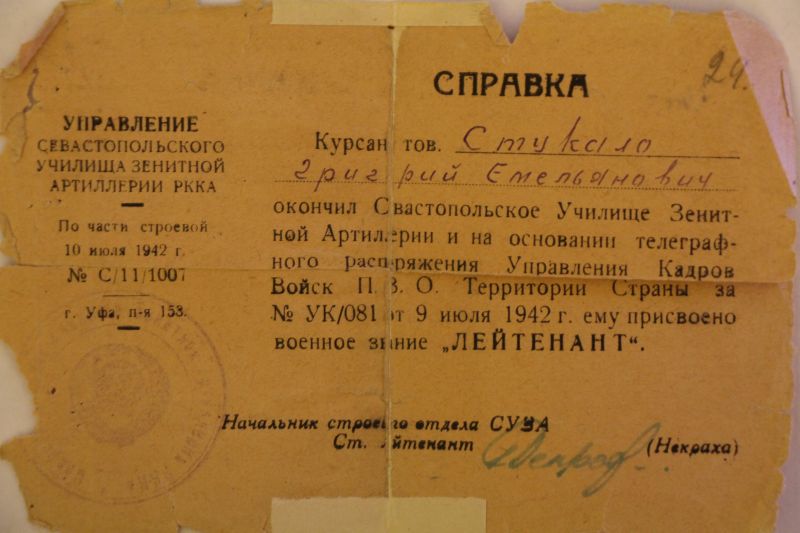 24.
СПРАВКА
УПРАВЛЕНИЕ
СЕВАСТОПОЛЬСКОГО
УЧИЛИЩА ЗЕНИТНОЙ
АРТИЛЛЕРИИ РККА
По части строевой
10 июля 1942 г.
№ С/11/1007
г. Уфа, п-я 153.
Курсан тов. Стукало
Григ рий Емельянович
окончил С вастопольское Училище Зенит-
ной Артил ерии и на основании телеграф-
ного расп ряжения Управления Кадров
Войск П. В. О. Территории Страны за
№ УК/081 от 9 июля 1942 г. ему присвоено
военное з ание „ЛЕЙТЕНАНТ“.
Начальник строево го отдела СУЗА
Ст. йтенант (Некраха)